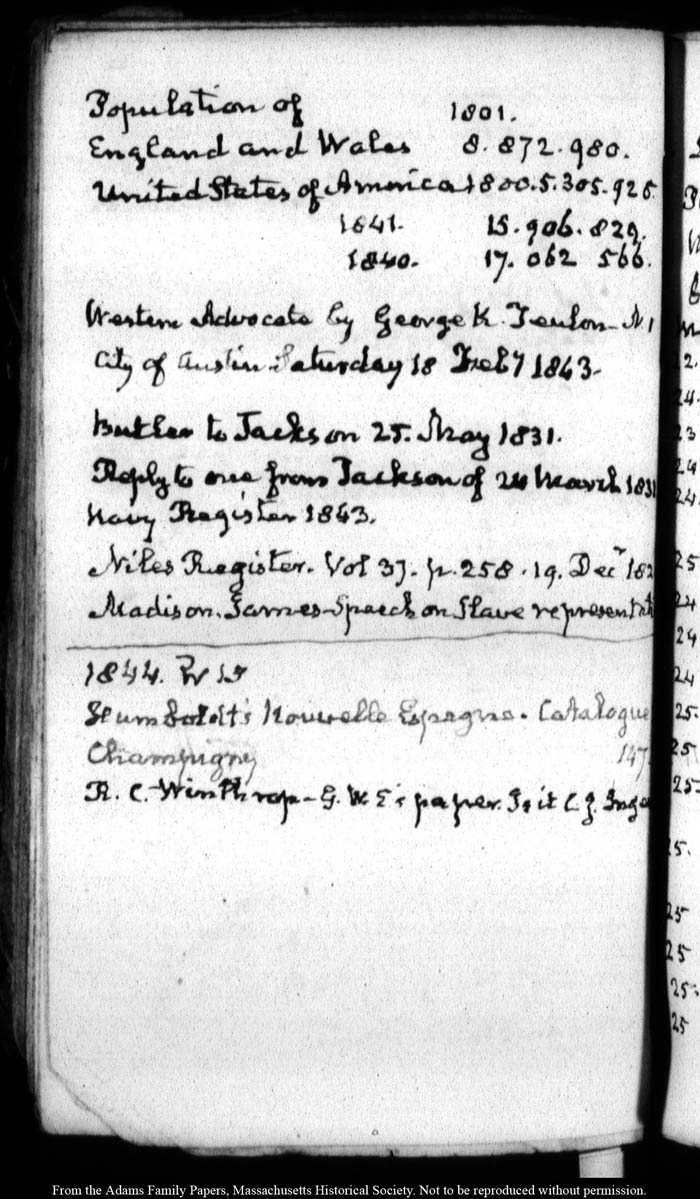 Population of 1801.
England and Wales 8.872.980.
United States of America 1800.5.305.925
1841. 15.906.829.
1840. 17.062 566.
Western Advocate by George K. Teulon - N. 1
City of Austin. Saturday 18 Feby 1843.
Butler to Jackson 25. May 1831.
Reply to one from Jackson of 24 March 1831
Navy Register 1843.
Niles Register. Vol 37. p. 258. 19. Decr 182
Madison. James - Speech on Slave representati
1844. W 15
Humboldt's Nouvelle Espagne. Catalogue
Champigny 147
R. C. Winthrop - G. W. E's paper. Is it C. J. Inge
2.
24.
23
24
24.
25
24
24
24
25.
25
25.
15.
25
25
25.
25
From the Adams Family Papers, Massachusetts Historical Society. Not to be reproduced without permission.